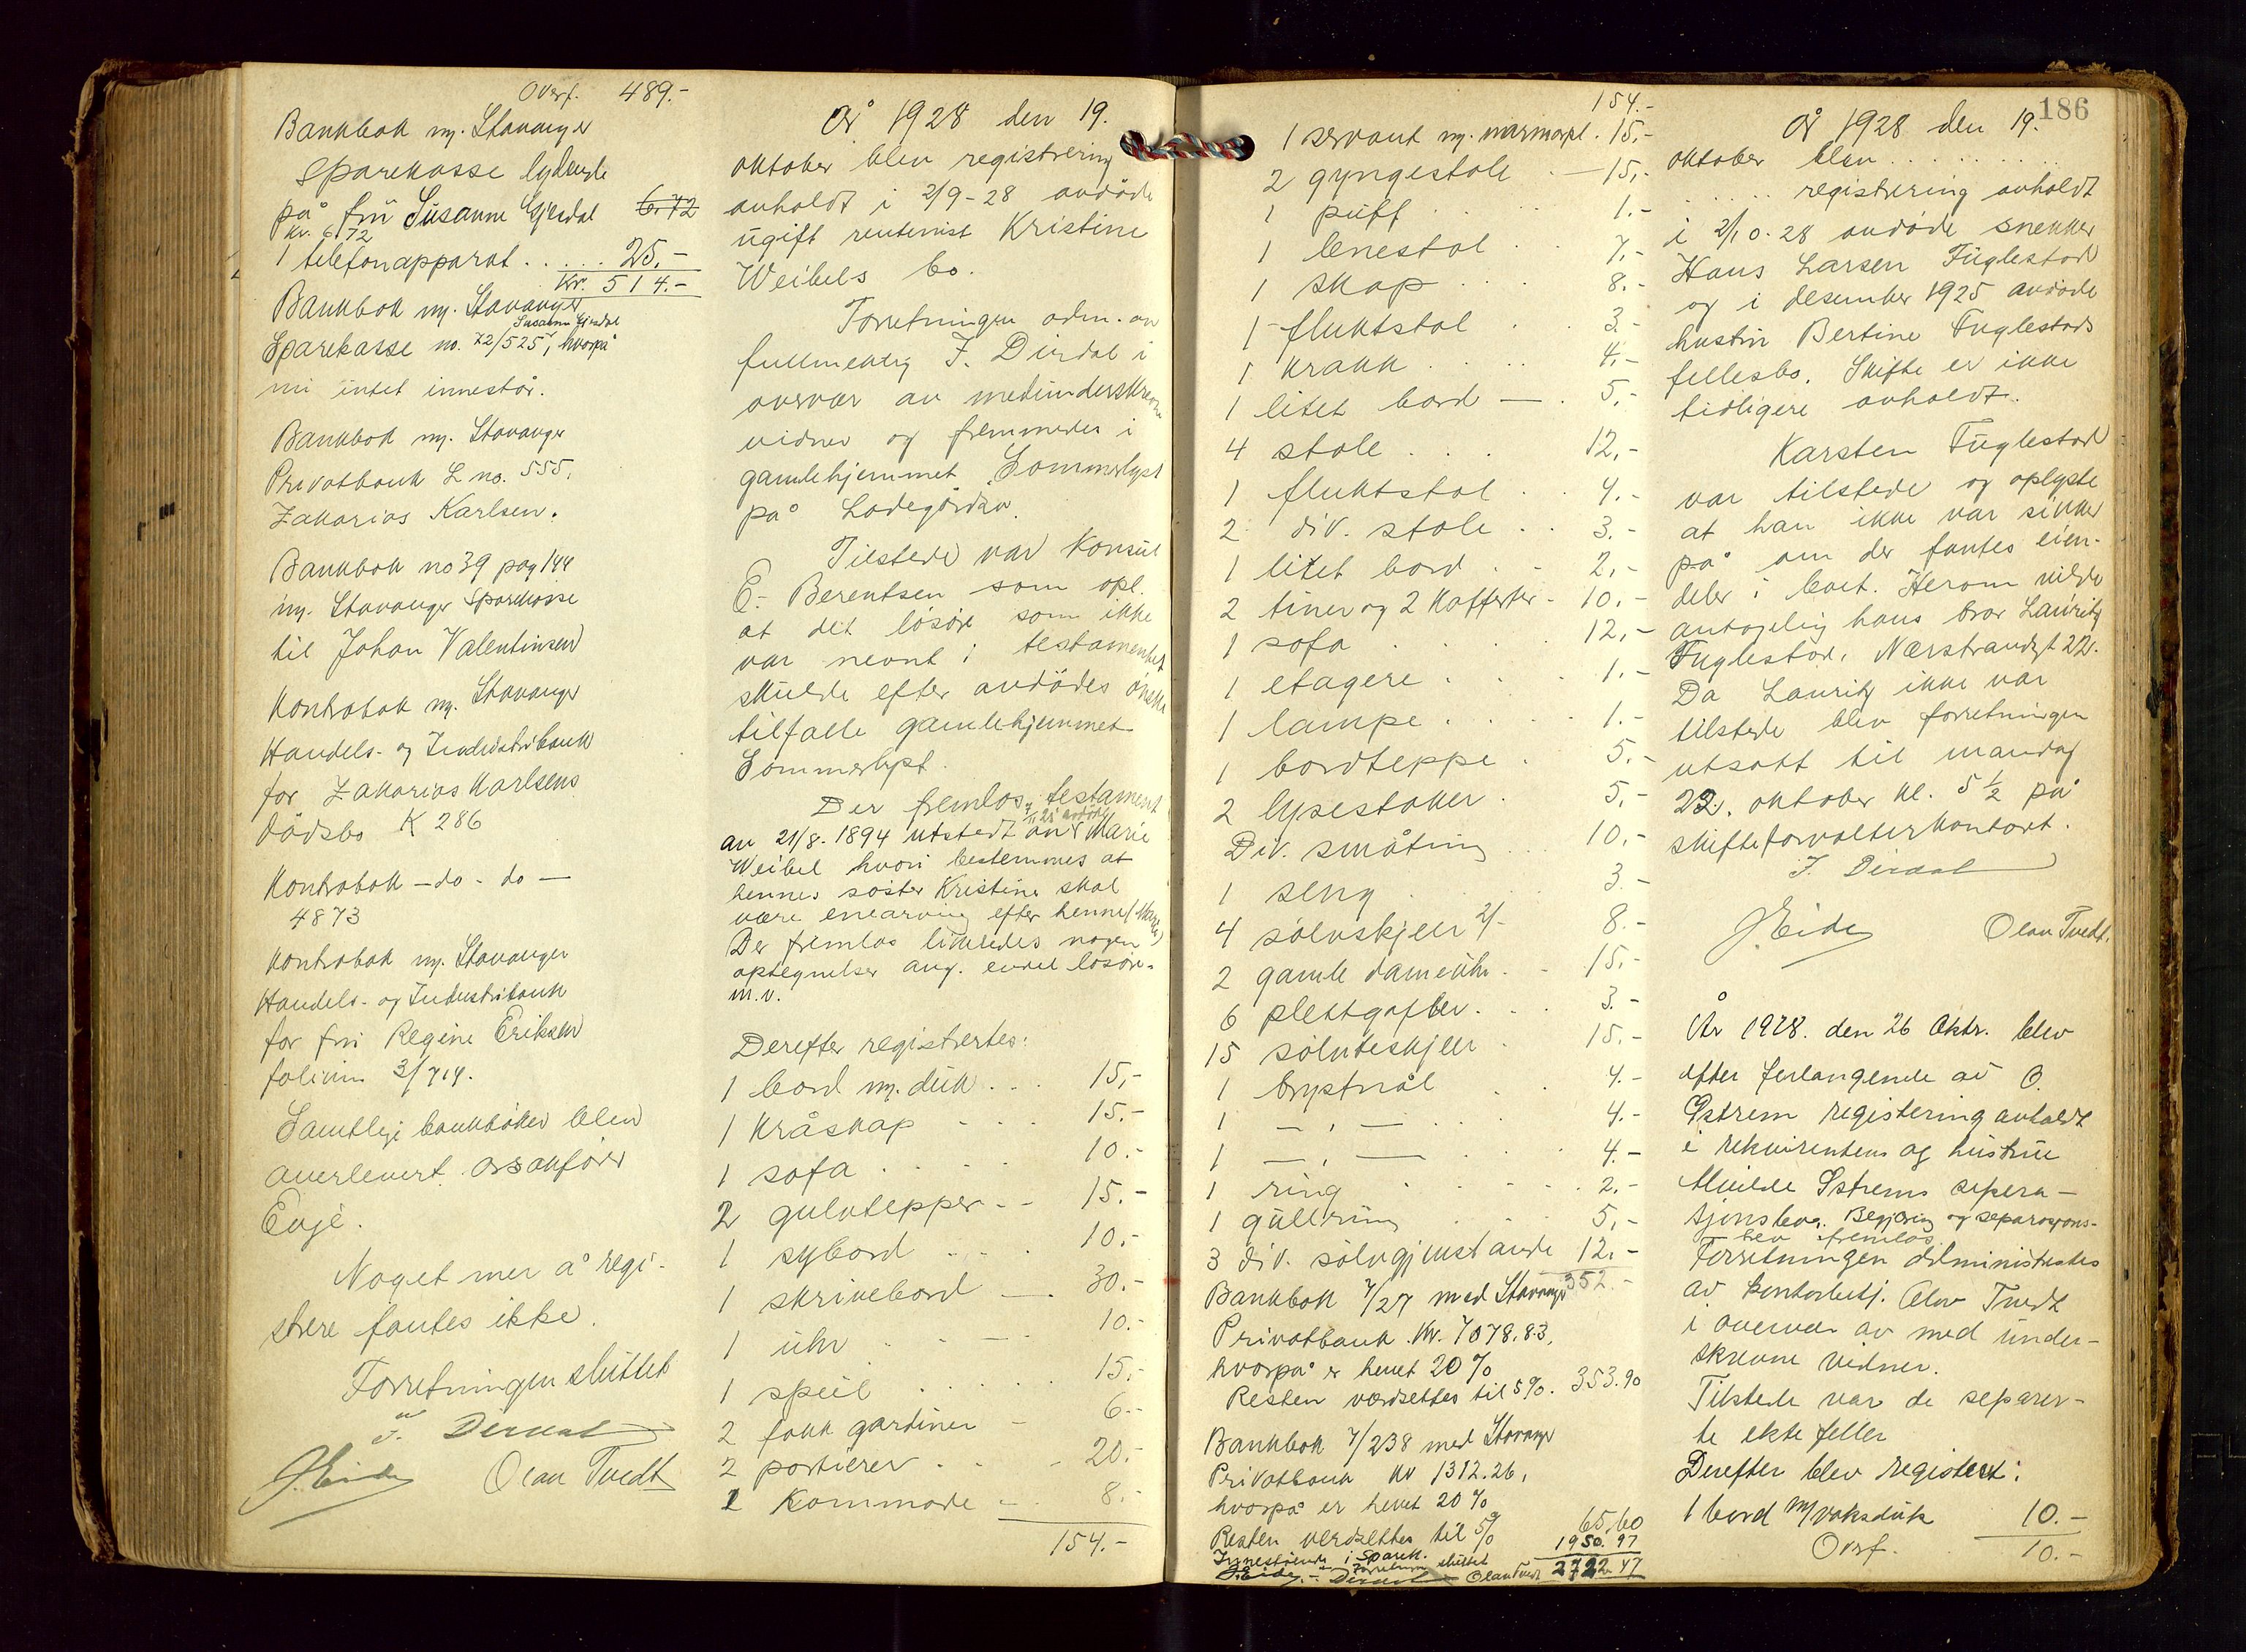 Overf. 489.-
Bankbok m. Stavanger
Sparekasse lydende
på frü Susanne Gjesdal 6.72
Kr. 6.72
1 telefonapparat . . . . . 25.-
Kr. 514.-
Bankbok m. Stavanger
Susanne Gjesdal
Sparekasse no. 72/525, hvorpå
nu intet innestår.
Bankbok m. Stavanger
Privatbank L no. 555,
Zakarias Karlsen.
Bankbok no 39 pag 144
m. Stavanger Sparekasse
til Johan Valentinsen
Kontrabok m. Stavanger
Handels- og Industribank
for Zakarias Karlsens
dødsbo K 286
Kontrabok - do - do -
4873
Kontrabok m. Stavanger
Handels- og Industribank
for frü Regine Eriksen
folium 3/714.
Samtlige bankbøker blev
overlevert orsakfører
Evje.
Noget mer å regi-
strere fantes ikke.
Forretningen sluttet
J. Dirdal
J. Eide Olav Tvedt
År 1928 den 19.
oktober blev registrering
avholdt i 2/9-28 avdøde
ugift rentenist Kristine
Weibels bo.
Forretningen adm. av
fullmektig J. Dirdal i
overvær av medunderskrevne
vidner og fremmedes i
gamlehjemmet Sommerlyst
på Ladegården.
Tilstede var Konsul
E. Berentsen som opl.
at det løsøre som ikke
var nevnt i testamentet
skulde efter avdødes ønske
tilfalle gamlehjemmet
Sommerlyst.
Der fremlos testament
av 21/8. 1894 utstedt av Marie
Weibel hvori bestemmes at
hennes søster Kristine skal
være enearving efter henne (Marie)
Der fremlos likeledes nogen
optegnelser ang. endel løsøre
m.v.
Derefter registrertes:
1 bord m. duk . . . 15,-
1 kråskap . . . 15.-
1 sofa . . . . 10.-
2 gulvtepper - - 15.-
1 sybord . . . . 10.-
1 skrivebord - . 30.-
1 uhr . . - . 10.-
1 speil . . . . . 15,-
2 fakk gardiner - 6.-
2 portierer . . . 20.-
1 Kommode - . 8.-
154.-
154.-
1 servant m. marmorpl. 15,-
2 gyngestole . - 15,-
1 puff . . . . 1.-
1 lenestol . . 7,-
1 skap . . . . 8.-
1 fluktstol . . 3.-
1 krakk . . . . 4.-
1 litet bord - . 5,-
4 stole . . . 12,-
1 fluktstol . . 4.-
2 div. stole . . 3.-
1 litet bord . - 2,-
2 tiner og 2 kofferter - 10.-
1 sofa . . . . 12,-
1 etagere . . . 1.-
1 lampe . . . . 1.-
1 bordteppe . 5.-
2 lysestaker . 5,-
Div. småting . . 10.-
1 seng . . . 3.-
4 sølvskjeer 2/- 8.-
2 gamle dameuhr. - 15.-
6 plettgafler. . . 3.-
15 sølvteskjeer . 15.-
1 brystnål . . 4.-
1 - , - . . . 4.-
1 - , - . . . 4.-
1 ring . . - . 2.-
1 gullring . . . 5,-
3 div. sølvgjenstande 12.-
352.-
Bankbok 7/27 med Stavanger
Privatbank. Kr. 7078.83,
hvorpå er hevet 20%
Resten værdsettes til 5%. 353.90
Bankbok 7/238 med Stavanger
Privatbank kr 1312.26,
hvorpå er hevet 20%
Resten verdsettes til 5% 65.60
Innestående i Sparek. 1950.97
Forretn. sluttet 2722.47
J. Eide. - Dirdal Olav Tvedt
186
År 1928 den 19.
oktober blev . . . . . . . .
. . . . . registrering avholdt
i 2/10-28 avdøde snekker
Hans Larsen Fuglestad
og i desember 1925 avdøde
hustru Bertine Fuglestads
fellesbo. Skifte er ikke
tidligere avholdt.
Karsten Fuglestad
var tilstede og oplyste
at han ikke var sikker
på om der fantes eien-
deler i boet. Herom vilde
antagelig hans bror Lauritz
Fuglestad, Nærstrandgt 22.
Da Lauritz ikke var
tilstede blev forretningen
utsatt til mandag
22. oktober kl. 5 1/2 på
skifteforvalterkontoret.
J. Dirdal
J. Eide Olav Tvedt.
År 1928. den 26 Oktr. blev
efter forlangende av O.
Østrem registering avholdt
i rekvirentens og hustru
Østrems separa-
sjonsbo. Begjæring og separasjons-
blev fremlos.
Forretningen administrertes
av Kontorbetj. Olav Tvedt
i overvær av med under-
skrevne vidner.
Tilstede var de separer-
te ektefeller
Derefter blev registert:
1 bord m/voksduk 10.-
Ovrf. 10.-